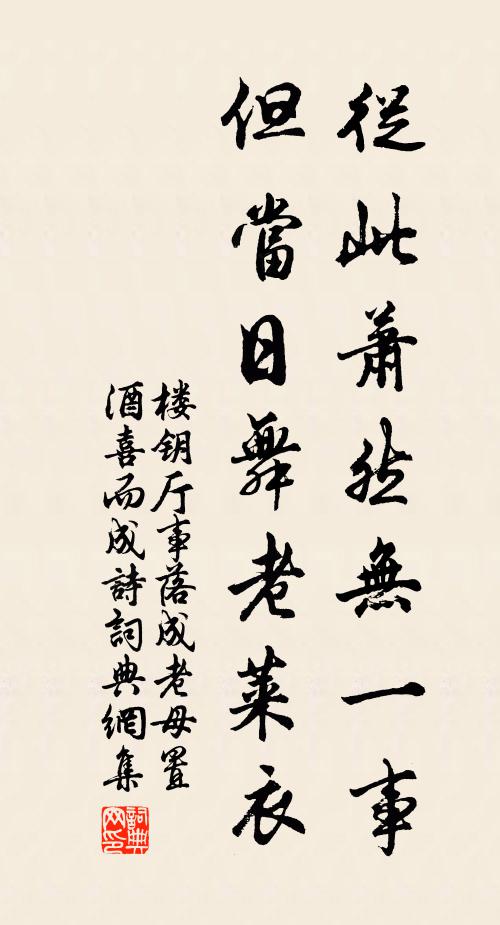 從此蕭然無一事
但當日舞老萊衣
楼钥厅事落成老母置
酒喜而成詩詞典網集
詞典
网印